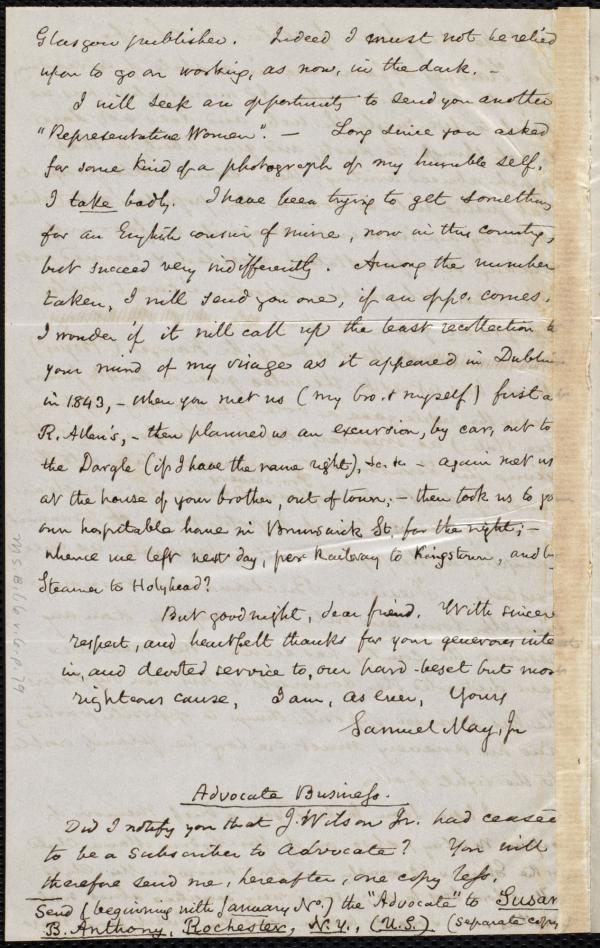 Glasgow publisher. Indeed I must not be relied
upon to go on working, as now, in the dark. –
I will seek an opportunity to send you another
"Representative Women". – Long since you asked
for some kind of a photograph of my humble self.
I take badly. I have been trying to get something
for an English cousin of mine, now in this country,
but succeed very indifferently. Among the number
taken, I will send you one, if an oppo. comes.
I wonder if it will call up the least recollection to
your mind of my visage as it appeared in Dublin
in 1843, – when you met us (my bro. & myself) first at
R. Allen's, – then planned us an excursion, by car, out to
the Dargle (if I have the name right), &c. &c – again met us
at the house of your brother, out of town; – then took us to yo
own hospitable home in Brunswick St. for the night; –
whence we left next day, per Railway to Kingstown, and by
Steamer to Holyhead?
But good night, dear friend. With sincere
respect, and heartfelt thanks for your generous inte
in, and devoted service to, our hard-beset but most
righteous cause, I am, as ever, Yours
Samuel May, Jr
Advocate Business.
Did I notify you that J. Wilson Jr. had ceased
to be a subscriber to Advocate? You will
therefore send me, hereafter, one copy less.
Send (beginning with January No.) the "Advocate" to Susan
B. Anthony, Rochester, N.Y., (U.S.) (separate copy
MS B.1.6 v.6 p.79